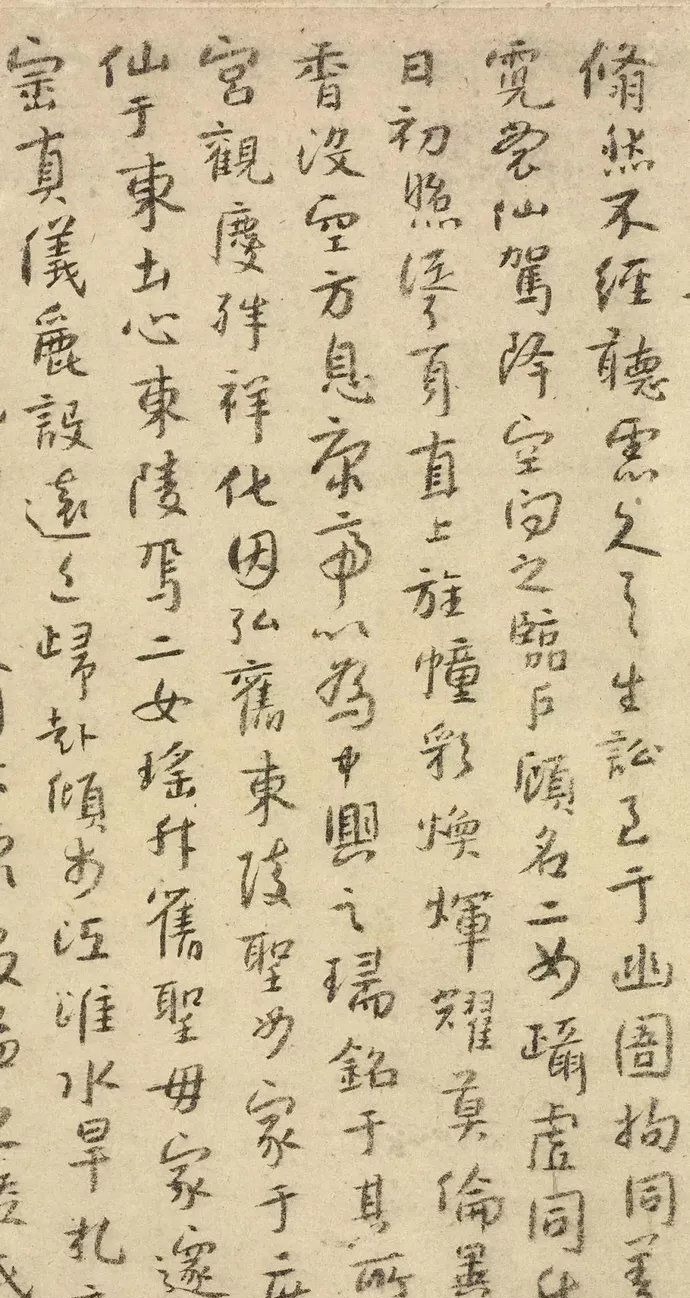 翛然不經聽慮久之生訟至于幽圄拘同羑
霓裳仙駕降空向之臨戶顧名二女躡虛同
日初照身直上旌幢彩煥輝耀莫倫異
香没空方息康帝以為中興之瑞銘于其所
宮觀慶殊祥化因弘舊東陵聖女家于
仙于東土心東陵焉二女瑶升舊聖母家邃
真儀麗設遠近歸赴傾江淮水旱札